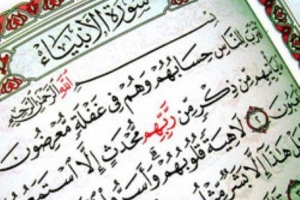 سُورَةُ الْأَنْبِيَاءِ
بِسْمِ اللَّهِ الرَّحْمَٰنِ الرَّحِيمِ
لِلنَّاسِ حِسَابُهُمْ وَهُمْ فِي غَفْلَةٍ مُعْرِضُونَ
مِنْ ذِكْرٍ مِنْ رَبِّهِمْ مُحْدَثٍ إِلَّا اسْتَمَعُو
لَاهِيَةً قُلُوبُهُمْ وَأَسَرُّوا
هَذَا إِلَّا بَشَرٌ